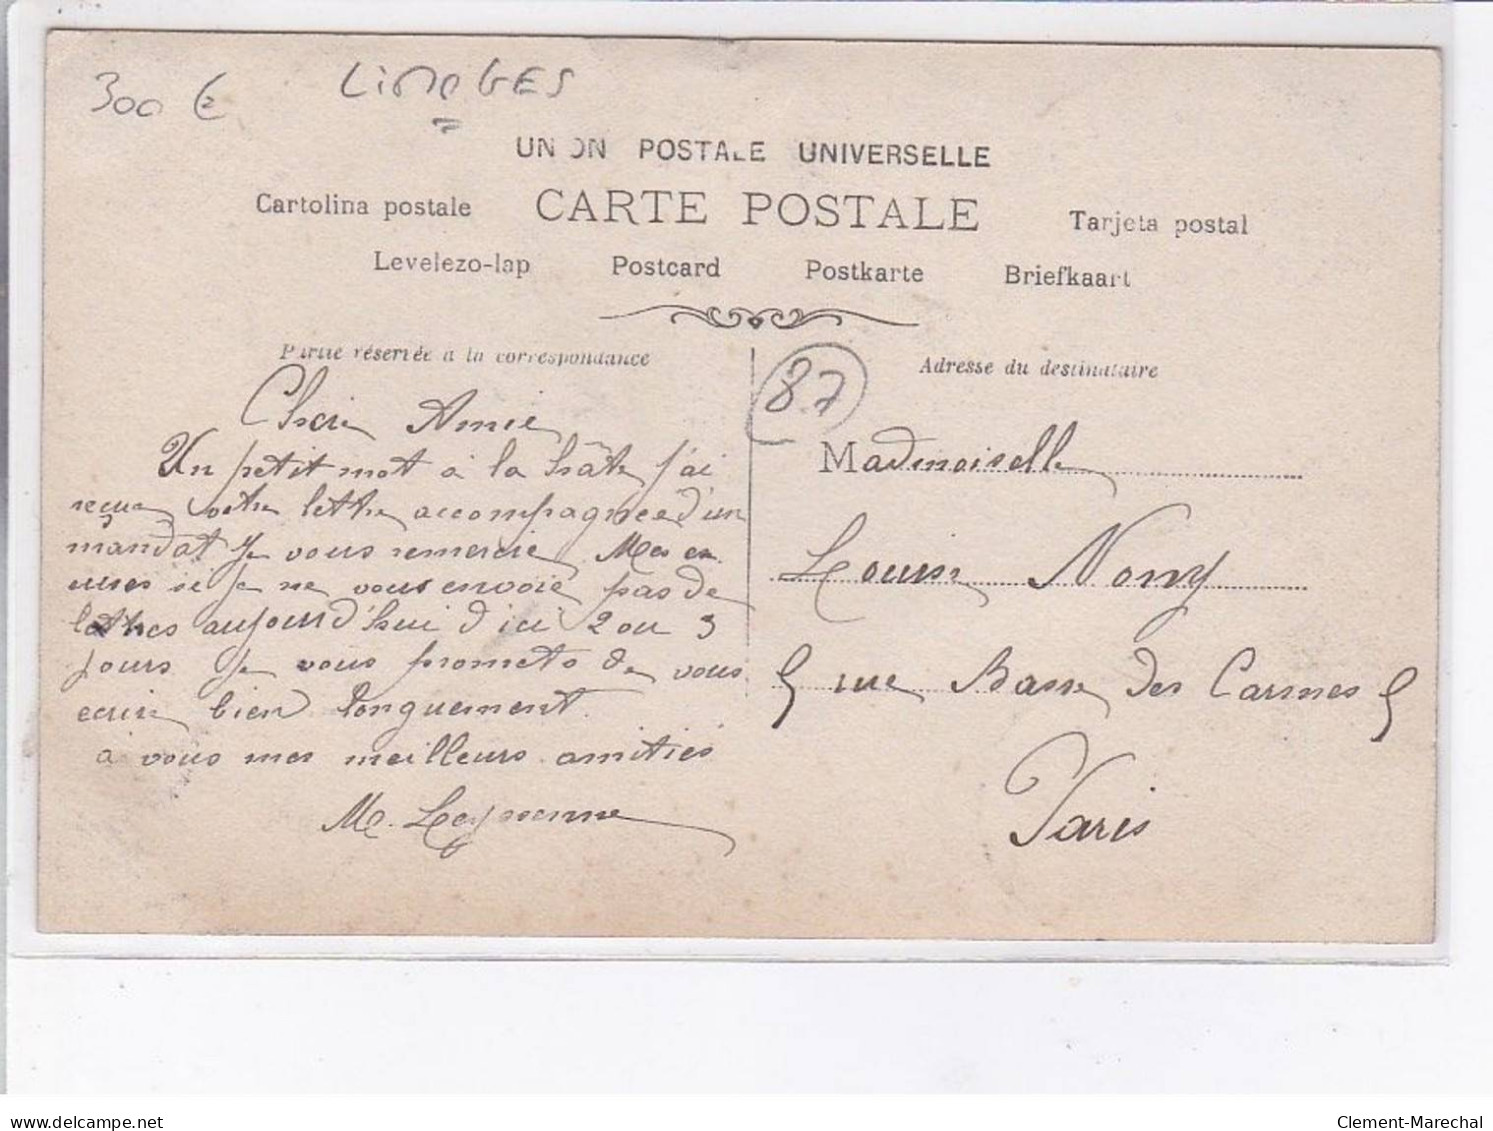 300 €
LIMOGES
UNION POSTALE UNIVERSELLE
Cartolina postale CARTE POSTALE Tarjeta postal
Levelezo-lap Postcard Postkarte Briefkaart
Partie réservée à la correspondance
87
Adresse du destinataire
Cherie Amie
Un petit mot à la hâte j'ai
reçue votre lettre accompagnée d'un
mandat Je vous remercie Mes ex
cuses si je ne vous envoie pas de
lettres aujourd'hui d'ici 2 ou 3
jours Je vous promets de vous
ecrire bien longuement.
à vous mes meilleurs amitiés
M.
Mademoiselle
Louise Nony
5 rue Basse des Carmes 5
Paris
delcampe.net
Clement-Marechal